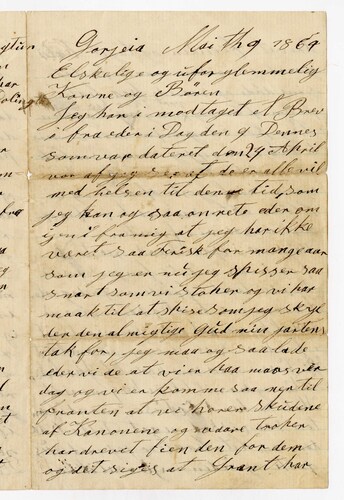 Gorjeia Mai th 9 1864
Elskelige og uforglemmelig
Konne og Bören
Jeg har i modtaget et Brev
i fra eder i Dag den 9 Dennes
som var dateret den 24 April
vor af jeg ser at do er alle vil
med helsen til den tid, som
jeg kan og saa onrete eder om
i nu fra mig at jeg har ikke
været saa Ferisk for mange aar
som jeg er nu jeg spisser saa
snart som vi stopper og vi har
maak til at spise som jeg skyl
der den almigtige Gud min jartens
tak for, jeg maa og saa lade
eder vide at vi er paa maas ver
dag og vi er komme saa nær til
franten at vi hører skudene
af Kanonene og vaare troper
har drevet fienden for dem
og det siges at Grant har